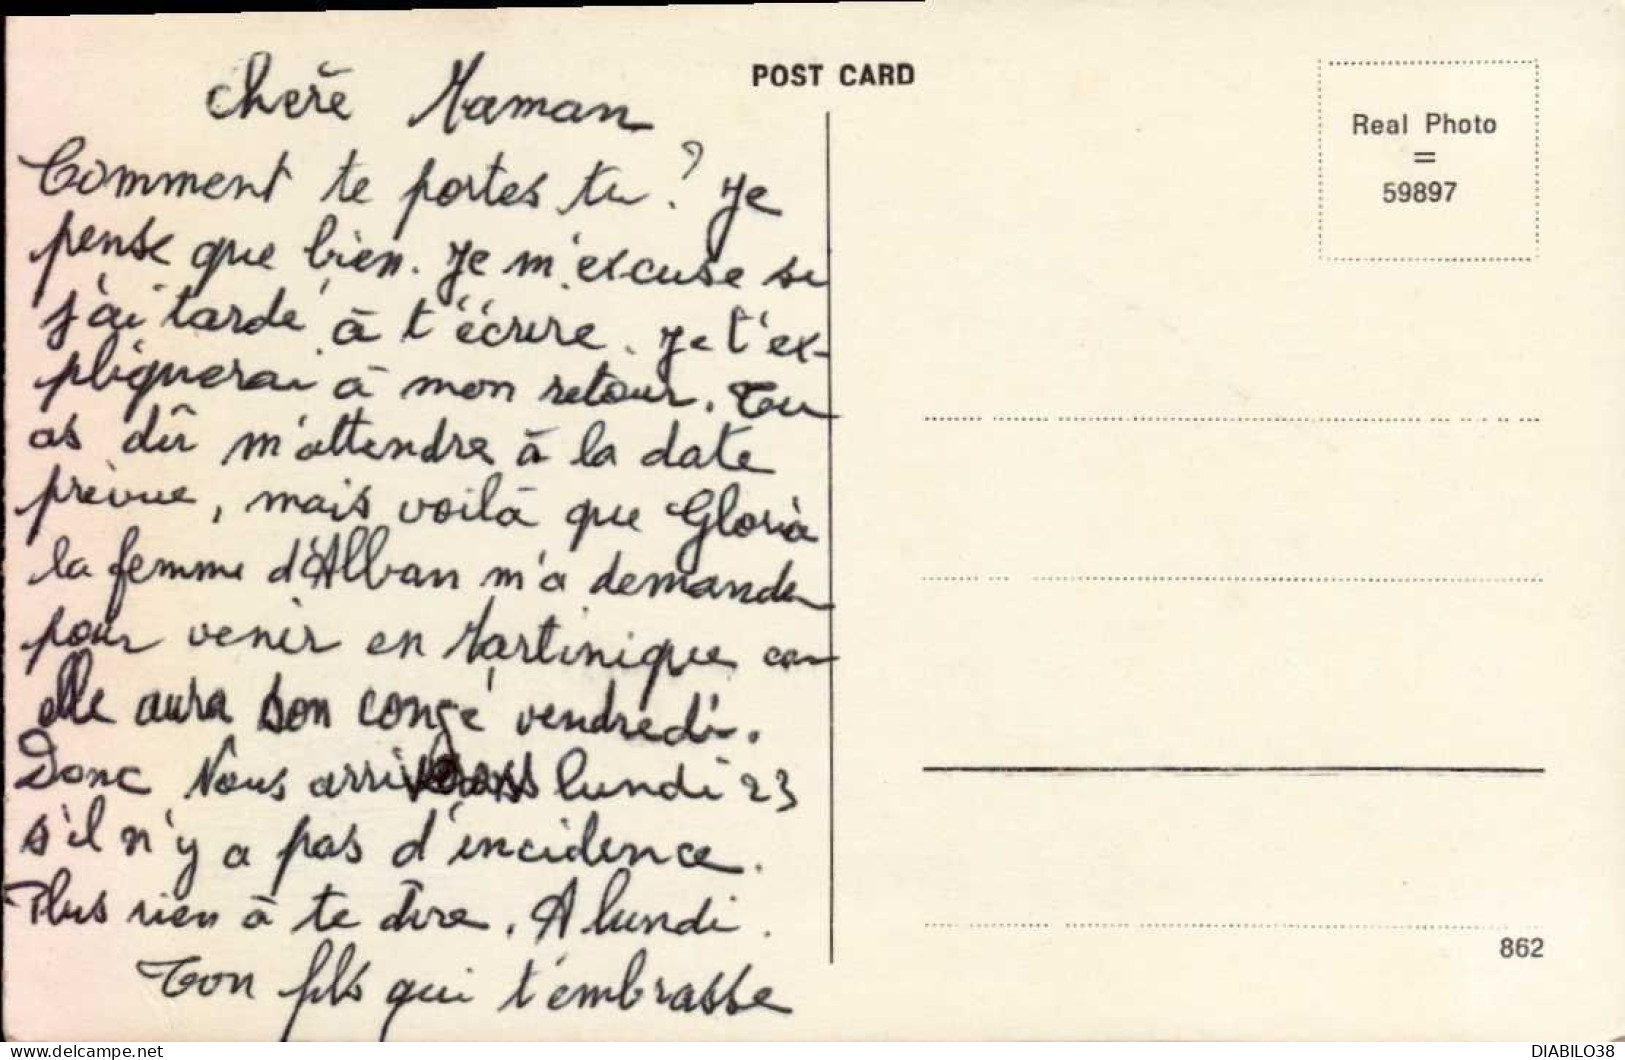 Chère Maman
Comment te portes tu? Je
pense que bien. Je m'excuse si
j'ai tardé à t'écrire. Je t'ex-
pliquerai à mon retour. Tu
as dû m'attendre à la date
prévue, mais voilà que Gloria
la femme d'Alban m'a demander
pour venir en Martinique car
elle aura son congé vendredi.
Donc Nous arriverons lundi 23
s'il n'y a pas d'incidence.
Plus rien à te dire. A lundi.
Ton fils qui t'embrasse
POST CARD
Real Photo
=
59897
862
DIABILO38
delcampe.net